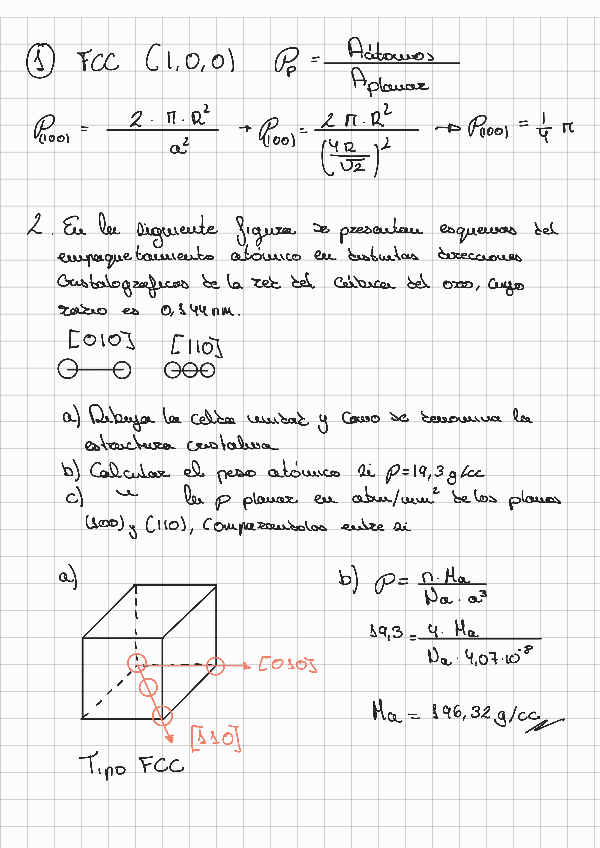 1 FCC (1,0,0) ρp = Aátomos / Aplanar
ρ(100) = 2 · π · R² / a² → ρ(100) = 2 π · R² / (4R / √2)² → ρ(100) = 1/4 π
2. En la siguiente figura se presentan esquemas del
empaquetamiento atómico en distintas direcciones
cristalograficas de la red del cúbica del oro, cuyo
radio es 0,144nm.
[010] [110]
a) Dibuja la celda unidad y como se denomina la
estructura cristalina
b) Calcular el peso atómico si ρ=19,3g/cc
c) " la ρ planar en atm/mm² de los planos
(100) y (110), comparandolos entre si
a)
[010]
[110]
Tipo FCC
b) ρ = n · Ma / Na · a³
19,3 = 4 · Ma / Na · 4,07·10⁻⁸
Ma = 196,32 g/cc